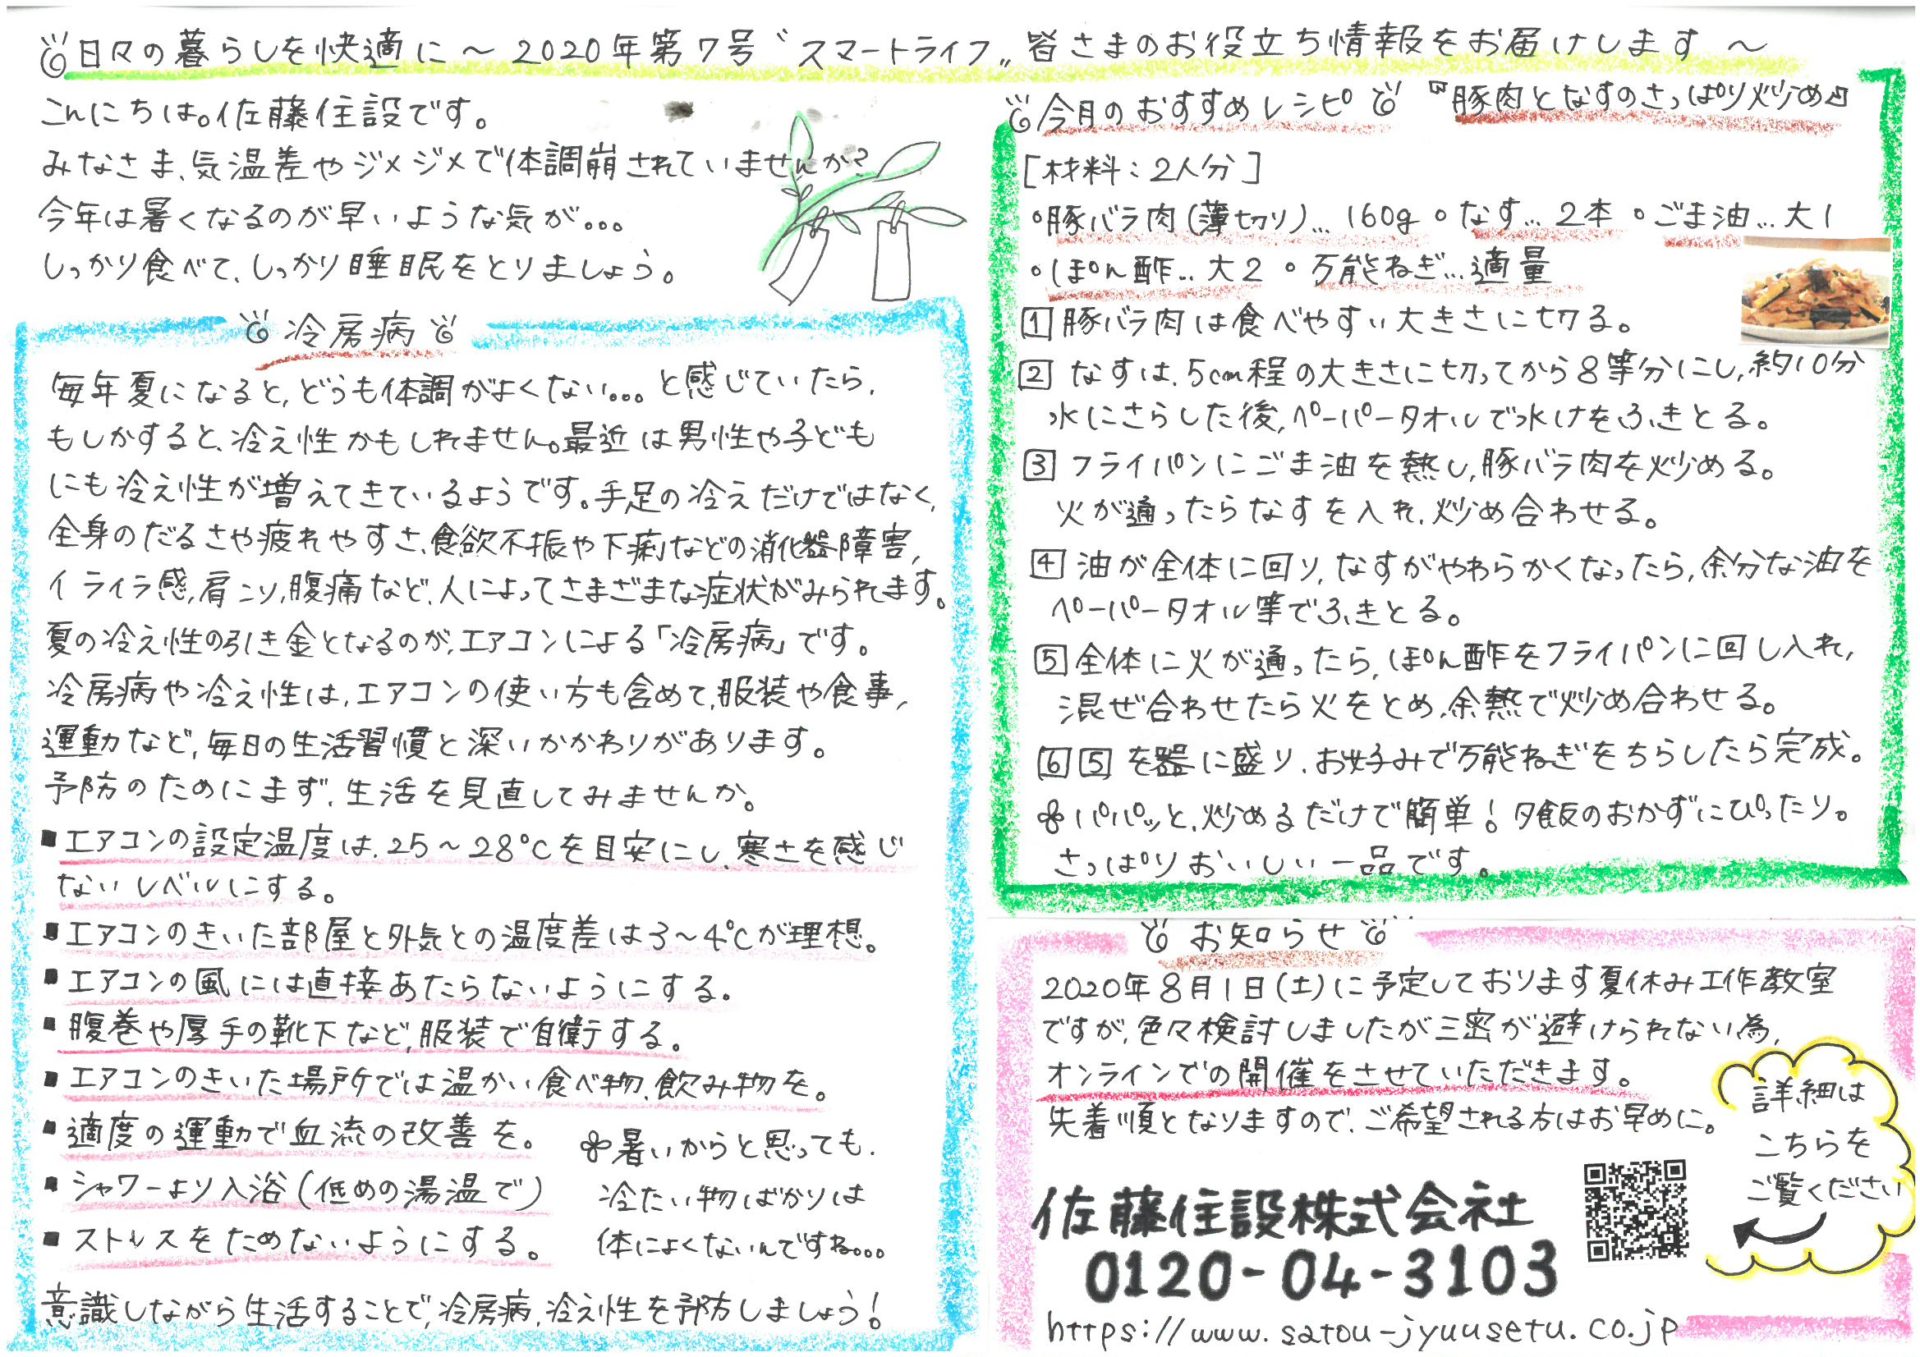 日々の暮らしを快適に～2020年第7号〝スマートライフ〟皆さまのお役立ち情報をお届けします～
こんにちは。佐藤住設です。
みなさま、気温差やジメジメで体調崩されていませんか?
今年は暑くなるのが早いような気が…
しっかり食べて、しっかり睡眠をとりましょう。
冷房病
毎年夏になると、どうも体調がよくない…と感じていたら、
もしかすると、冷え性かもしれません。最近は男性や子ども
にも冷え性が増えてきているようです。手足の冷えだけではなく、
全身のだるさや疲れやすさ、食欲不振や下痢などの消化器障害、
イライラ感、肩こり、腹痛など、人によってさまざまな症状がみられます。
夏の冷え性の引き金となるのが、エアコンによる「冷房病」です。
冷房病や冷え性は、エアコンの使い方も含めて、服装や食事、
運動など、毎日の生活習慣と深いかかわりがあります。
予防のためにまず、生活を見直してみませんか。
■エアコンの設定温度は、25～28℃を目安にし、寒さを感じ
ないレベルにする。
■エアコンのきいた部屋と外気との温度差は3～4℃が理想。
■エアコンの風には直接あたらないようにする。
■腹巻や厚手の靴下など、服装で自衛する。
■エアコンのきいた場所では温かい食べ物、飲み物を。
■適度の運動で血流の改善を。
■シャワーより入浴(低めの湯温で)
■ストレスをためないようにする。
暑いからと思っても、
冷たい物ばかりは
体によくないんですね…
意識しながら生活することで、冷房病、冷え性を予防しましょう!
今月のおすすめレシピ 『豚肉となすのさっぱり炒め』
[材料:2人分]
・豚バラ肉(薄切り)…160g ・なす…2本 ・ごま油…大1
・ぽん酢…大2 ・万能ねぎ…適量
1 豚バラ肉は食べやすい大きさに切る。
2 なすは、5cm程の大きさに切ってから8等分にし、約10分
水にさらした後、ペーパータオルで水けをふきとる。
3 フライパンにごま油を熱し、豚バラ肉を炒める。
火が通ったらなすを入れ、炒め合わせる。
4 油が全体に回り、なすがやわらかくなったら、余分な油を
ペーパータオル等でふきとる。
5 全体に火が通ったら、ぽん酢をフライパンに回し入れ、
混ぜ合わせたら火をとめ、余熱で炒め合わせる。
6 5を器に盛り、お好みで万能ねぎをちらしたら完成。
パパッと、炒めるだけで簡単!夕飯のおかずにぴったり。
さっぱりおいしい一品です。
お知らせ
2020年8月1日(土)に予定しております夏休み工作教室
ですが、色々検討しましたが三密が避けられない為、
オンラインでの開催をさせていただきます。
先着順となりますので、ご希望される方はお早めに。
詳細は
こちらを
ご覧ください
佐藤住設株式会社
0120-04-3103
https://www.satou-jyuusetu.co.jp